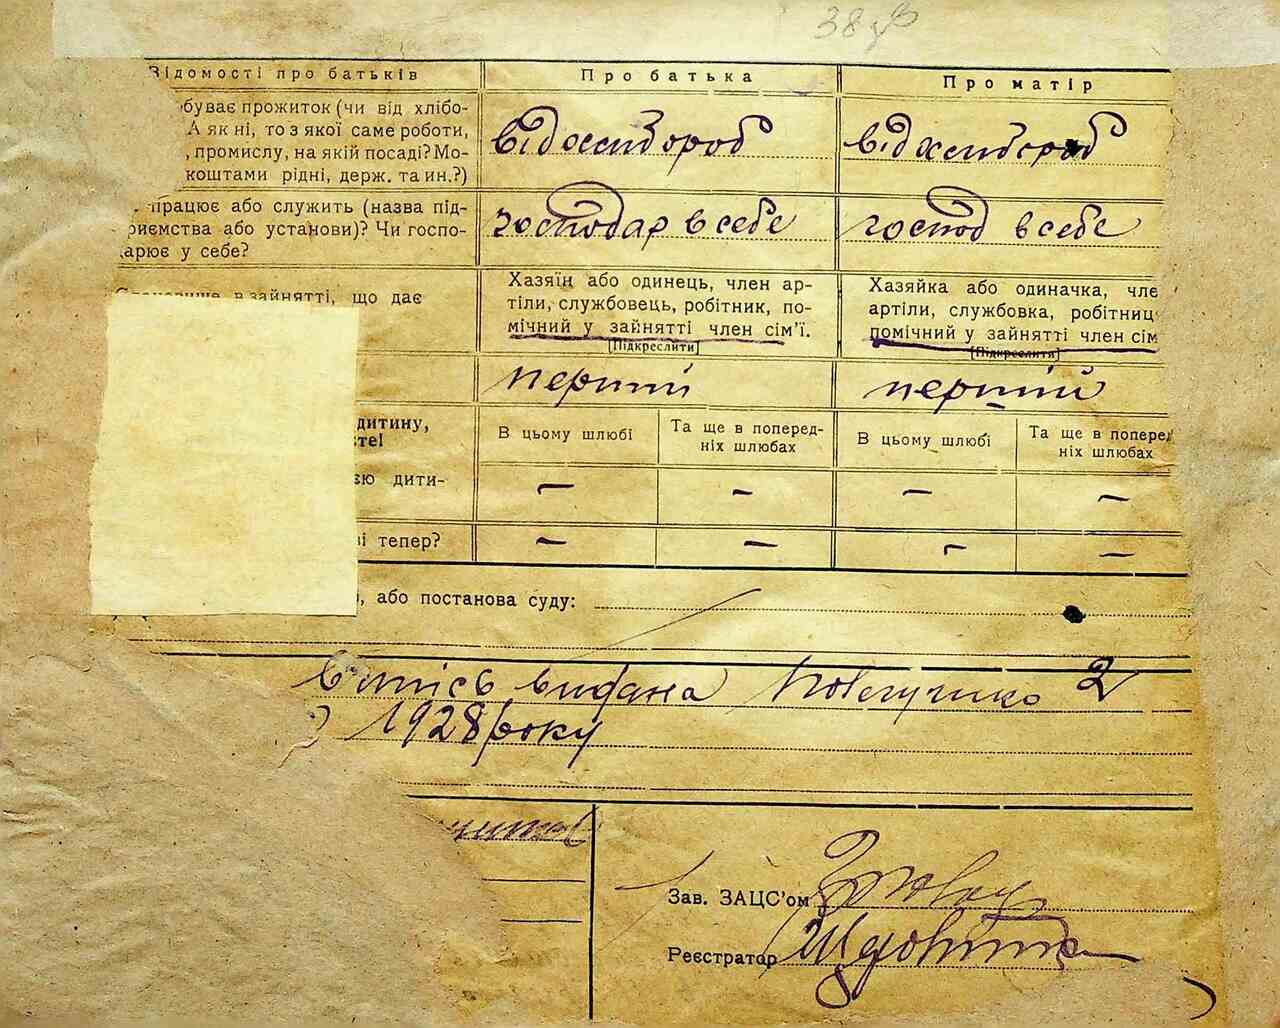 38
Відомості про батьків
Про батька
Про матір
буває прожиток (чи від хлібо-
А як ні, то з якої саме роботи,
, промислу, на якій посаді? Мо-
коштами рідні, держ. та ин.?)
від хлібороб
від хлібороб
працює або служить (назва під-
риємства або установи)? Чи госпо-
арює у себе?
господар в себе
господ в себе
в зайнятті, що дає
Хазяїн або одинець, член ар-
тілі, службовець, робітник, по-
мічний у зайнятті член сім'ї.
[Підкреслити]
Хазяйка або одиначка, чле
артілі, службовка, робітниц
помічний у зайнятті член сім
[Підкреслити]
перший
перший
дитину,
те!
В цьому шлюбі
Та ще в поперед-
ніх шлюбах
В цьому шлюбі
Та ще в попере
ніх шлюбах
єю дити-
— — — —
і тепер?
— — — —
, або постанова суду:
видана 2
1928 року
Зав. ЗАЦС'ом
Реєстратор